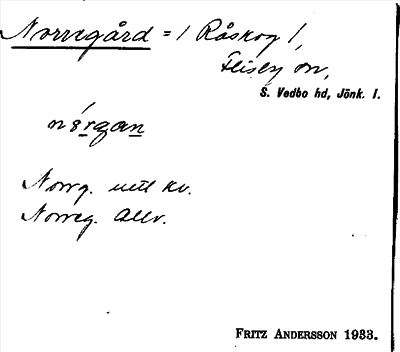 Norregård = 1 Råskog 1,
Flisby sn,
S. Vedbo hd, Jönk. l.
nórgan
Norrg. utt kv.
Norreg. Allv.
FRITZ ANDERSSON 1933.